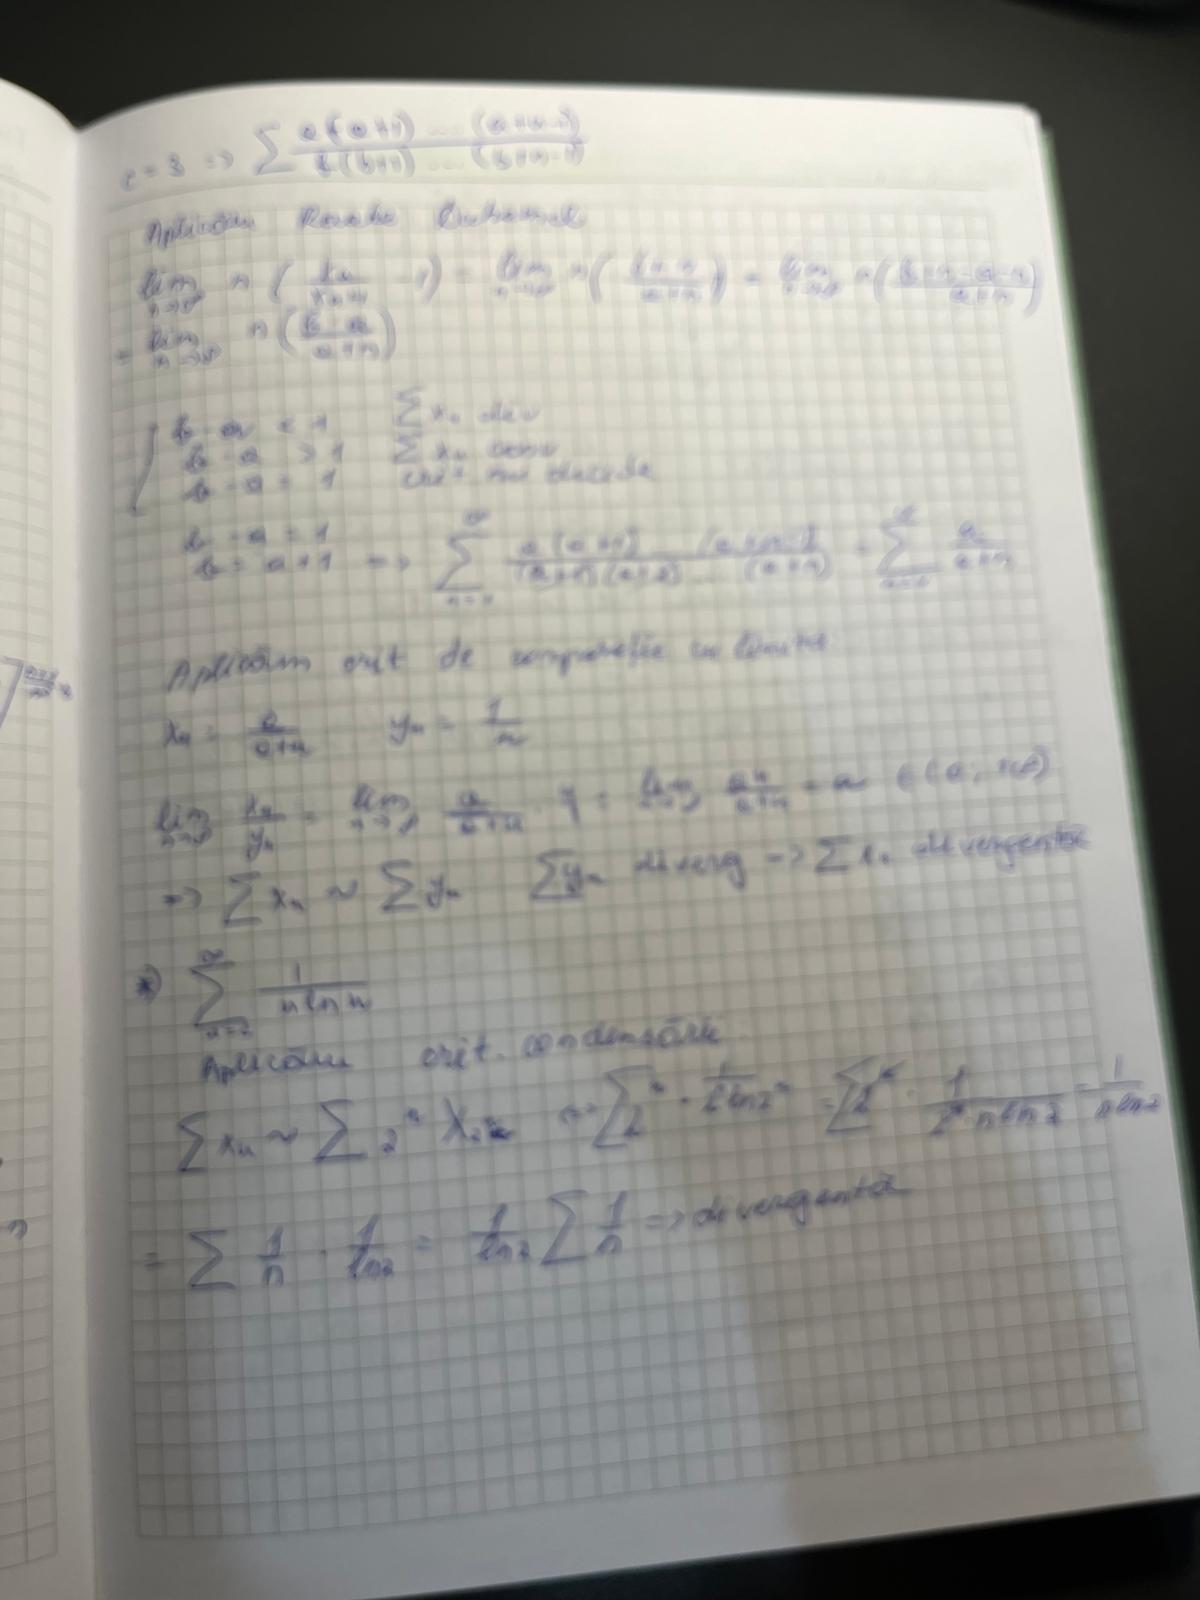 c = 3 => ∑ a(a+1) .... (a+n-1) / b(b+1) .... (b+n-1)
Aplicăm Raabe Duhamel
lim n→∞ n ( xn / xn+1 - 1 ) = lim n→∞ n ( b+n / a+n ) = lim n→∞ n ( b+n-a-n / a+n )
= lim n→∞ n ( b-a / a+n )
b - a < 1 ∑ xn div
b - a > 1 ∑ xn conv
b - a = 1 crit nu decide
b - a = 1
b = a+1 => ∑ a(a+1) (a+n-1) / (a+1)(a+2) ... (a+n) = ∑ a / a+n
Aplicăm crit de comparație cu limită
xn = a / a+n yn = 1 / n
lim n→∞ xn / yn = lim n→∞ a / a+n · = lim n→∞ an / a+n = a ∈ (0, +∞)
=> ∑ xn ~ ∑ yn ∑ yn diverg => ∑ xn divergentă
*) ∑ n=2 ∞ 1 / n ln n
Aplicăm crit. condensării
∑ xn ~ ∑ 2^n x2^n <=> ∑ 2^n · 1 / 2^n ln 2^n = ∑ 2^n · 1 / 2^n · n ln 2 = 1 / n ln 2
= ∑ 1/n · 1/ln2 = 1/ln2 ∑ 1/n => divergentă
n